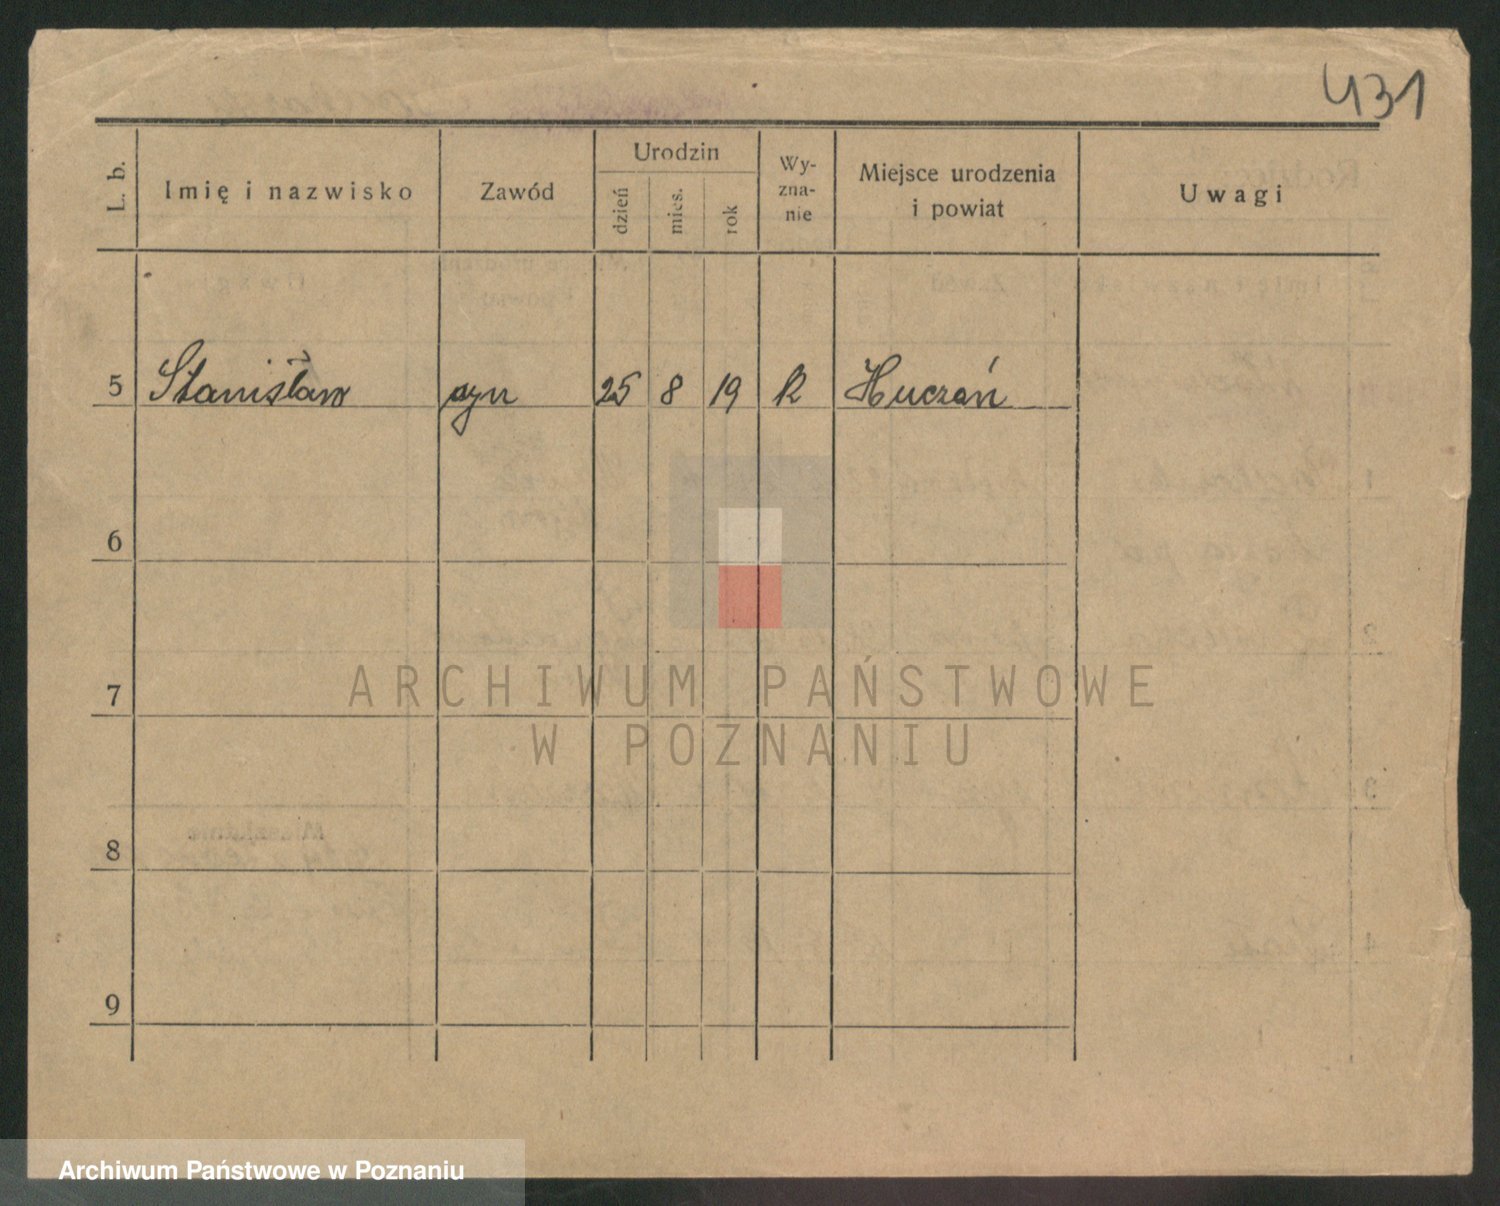 431
L. b.
Imię i nazwisko
Zawód
Urodzin
dzień
mies.
rok
Wy-
zna-
nie
Miejsce urodzenia
i powiat
Uwagi
5 Stanisław syn 25 8 19 R Huczań
6
7
8
9
ARCHIWUM PAŃSTWOWE
W POZNANIU
Archiwum Państwowe w Poznaniu